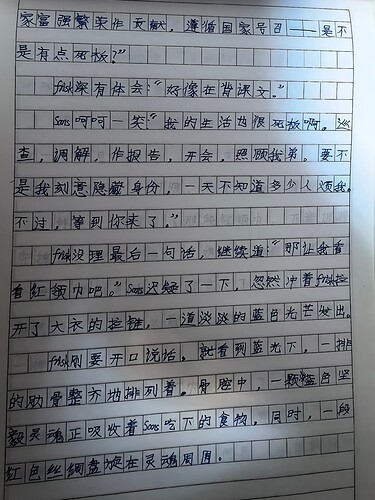 家富强繁荣作贡献，遵循国家号召——是不
是有点死板？”
frisk深有体会：“好像在背课文。”
Sans呵呵一笑：“我的生活也很死板啊。巡
查，调解，作报告，开会，照顾我弟。要不
是我刻意隐藏身份，一天不知道多少人烦我。
不过，等到你来了。”
frisk没理最后一句话，继续道：“那让我看
看红领巾吧。”Sans迟疑了一下，忽然冲着frisk拉
开了大衣的拉链，一道淡淡的蓝色光芒发出。
frisk刚要开口说话，就看到蓝光下，一排
的肋骨整齐地排列着。骨腔中，一颗蓝色坚
毅灵魂正吸收着Sans吃下的食物。同时，一段
红色丝绸盘旋在灵魂周围。